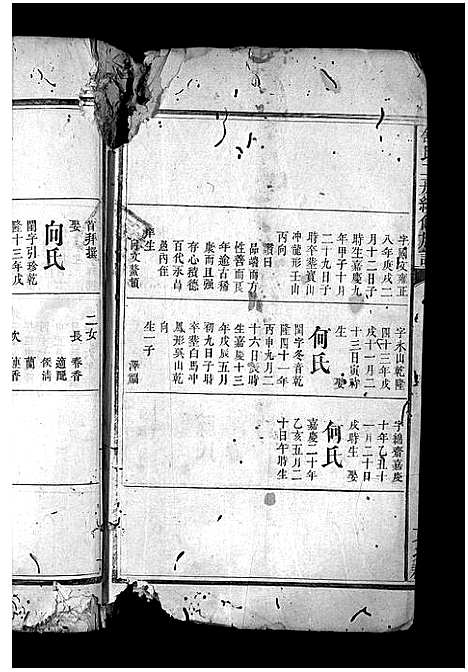 字國文雍正
八年庚戌二
月十二日子
時生嘉慶九
年甲子十月
二十九日子
時卒葬寶山
沖龍形壬山
丙向
讚曰
品端而方
性善而良
年逾古稀
康而且强
存心積德
百代永昌
字木山乾隆
四十三年戊
戌十一月二
十三日寅時
生 娶
何氏
閨字冬香乾
隆四十一年
丙申九月二
十六日辰時
生嘉慶十三
年戊辰五月
初九日子時
卒葬白馬沖
鳳形巽山乾
向
生一子
澤綱
字總齋嘉慶
十年乙丑十
一月二十日
戌時生 娶
何氏
嘉慶二十年
乙亥五月二
十日午時生
首拜撰
娶
向氏
閨字引珍乾
隆十三年戊
二女
長 春香
適配
侯淸
蘭
次 蓮香